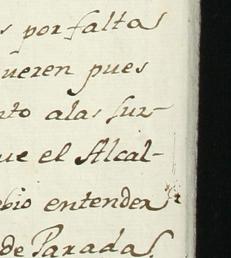 s por falta
ueren pues
rto alas sur-
ue el Alcal-
bio entender
de Paradas.